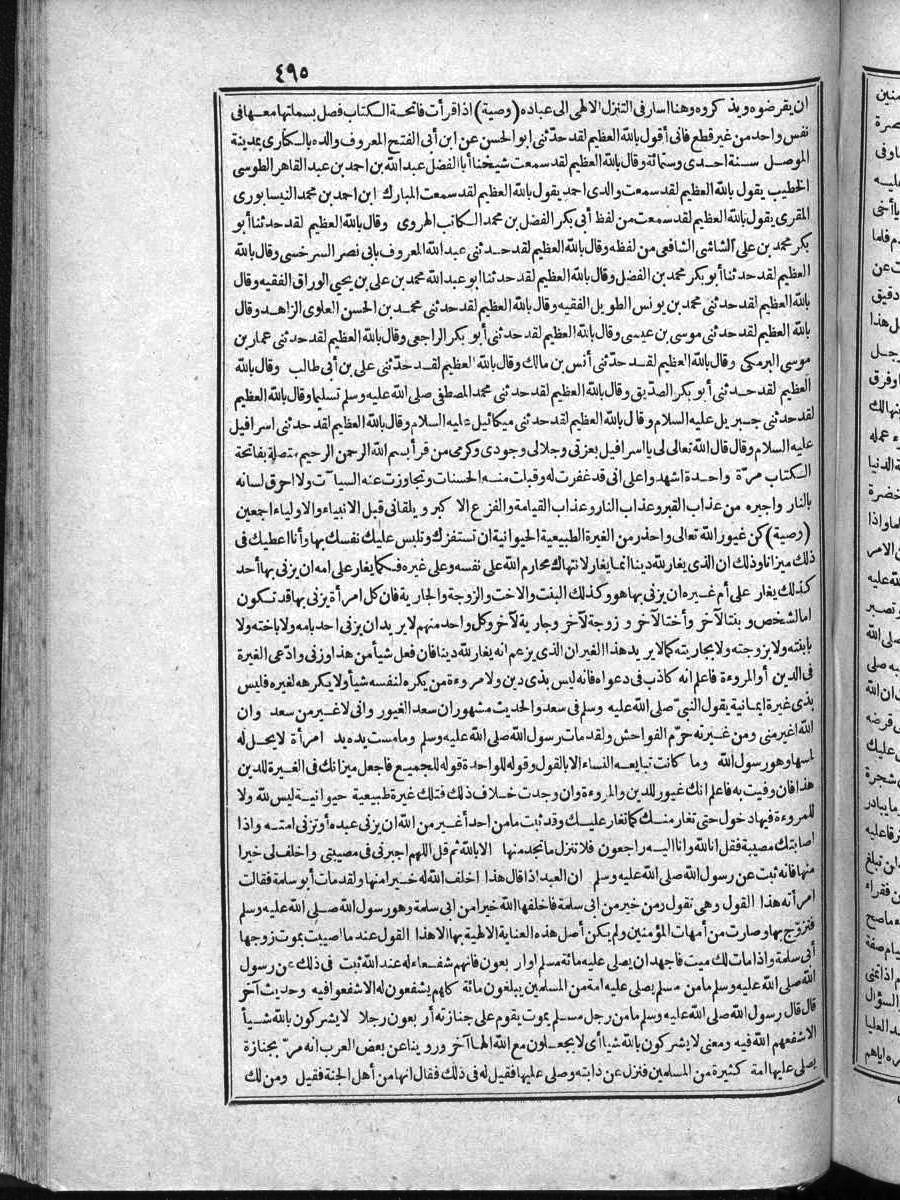 ٤٩٥
ان يقرضوه ويذكروه وهنا اسار فى التنزل الالهى الى عباده (وصية) اذا قرأت فاتحة الكتاب فصل بسملتها معها فى
نفس واحد من غير قطع فانى أقول بالله العظيم لقد حدثنى ابو الحسن عن ابن أبى الفتح المعروف والده بالكارى بمدينة
الموصل سنة احدى وستمائة وقال بالله العظيم لقد سمعت شيخنا أبا الفضل عبد الله بن احمد بن عبد القاهر الطوسى
الخطيب يقول بالله العظيم لقد سمعت والدى احمد يقول بالله العظيم لقد سمعت المبارك ابن احمد بن محمد النيسابورى
المقرى يقول بالله العظيم لقد سمعت من لفظ أبى بكر الفضل بن محمد الكاتب الهروى وقال بالله العظيم لقد حدثنا أبو
بكر محمد بن على الشاشى الشافعى من لفظه وقال بالله العظيم لقد حدثنى عبد الله المعروف بابى نصر السرخسى وقال بالله
العظيم لقد حدثنا أبو بكر محمد بن الفضل وقال بالله العظيم لقد حدثنا ابو عبد الله محمد بن على بن يحيى الوراق الفقيه وقال
بالله العظيم لقد حدثنى محمد بن يونس الطويل الفقيه وقال بالله العظيم لقد حدثنى محمد بن الحسن العلوى الزاهد وقال
بالله العظيم لقد حدثنى موسى بن عيسى وقال بالله العظيم لقد حدثنى أبو بكر الراجعى وقال بالله العظيم لقد حدثنى عمار بن
موسى البرمكى وقال بالله العظيم لقد حدّثنى أنس بن مالك وقال بالله العظيم لقد حدّثنى على بن أبى طالب وقال بالله
العظيم لقد حدثنى أبو بكر الصدّيق وقال بالله العظيم لقد حدثنى محمد المصطفى صلى الله عليه وسلم تسليما وقال بالله العظيم
لقد حدثنى جبريل عليه السلام وقال بالله العظيم لقد حدثنى ميكائيل عليه السلام وقال بالله العظيم لقد حدثنى اسرافيل
عليه السلام وقال قال الله تعالى لى يا اسرافيل بعزتى وجلالى وجودى وكرمى من قرأ بسم الله الرحمن الرحيم متصلة بفاتحة
الكتاب مرّة واحدة اشهدوا على انى قد غفرت له وقبلت منه الحسنات وتجاوزت عنه السيآت ولا احرق لسانه
بالنار واجيره من عذاب القبر وعذاب النار وعذاب القيامة والفزع الاكبر ويلقانى قبل الانبياء والاولياء اجمعين
(وصية) كن غيورا لله تعالى واحذر من الغيرة الطبيعية الحيوانية ان تستفزك وتلبس عليك نفسك بها وأنا اعطيك فى
ذلك ميزانا وذلك ان الذى يغار لله دينا انما يغار لانتهاك محارم الله على نفسه وعلى غيره فكما يغار على امه ان يزنى بها أحد
كذلك يغار على أم غيره ان يزنى بها هو وكذلك البنت والاخت والزوجة والجارية فان كل امرأة يزنى بها قد تكون
اما لشخص وبنتا لآخر وأختا لآخر وزوجة لآخر وجارية لآخر وكل واحد منهم لا يريد ان يزنى احد بامه ولا باخته ولا
بابنته ولا بزوجته ولا بجاريته كما لا يريد هذا الغيران الذى يزعم انه يغار لله دينا فان فعل شيأ من هذا وزنى وادّعى الغيرة
فى الدين أو المروءة فاعلم انه كاذب فى دعواه فانه ليس بذى دين ولا مروءة من يكره لنفسه شيأ ولا يكرهه لغيره فليس
بذى غيرة ايمانية يقول النبىّ صلى الله عليه وسلم فى سعد والحديث مشهور ان سعد الغيور وانى لاغير من سعد وان
الله اغير منى ومن غيرته حرّم الفواحش ولقد مات رسول الله صلى الله عليه وسلم وما مست يده يد امرأة لا يحل له
لمسها وهو رسول الله وما كانت تبايعه النساء الا بالقول وقوله للواحدة قوله للجميع فاجعل ميزانك فى الغيرة للدين
هذا فان وفيت به فاعلم انك غيور للدين والمروءة وان وجدت خلاف ذلك فتلك غيرة طبيعية حيوانية ليس لله ولا
للمروءة فيها دخول حتى تغار منك كما تغار عليك وقد ثبت ما من احد أغير من الله ان يزنى عبده أو تزنى امته واذا
اصابتك مصيبة فقل انا لله وانا اليه راجعون فلا تنزل ما تجد منها الا بالله ثم قل اللهم اجبرنى فى مصيبتى واخلف لى خيرا
منها فانه ثبت عن رسول الله صلى الله عليه وسلم ان العبد اذا قال هذا اخلف الله له خيرا منها ولقد مات أبو سلمة فقالت
امرأته هذا القول وهى تقول ومن خير من ابى سلمة فاخلفها الله خيرا من ابى سلمة وهو رسول الله صلى الله عليه وسلم
فتزوّج بها وصارت من أمهات المؤمنين ولم يكن أصل هذه العناية الالهية بها الا هذا القول عند ما اصيبت بموت زوجها
أبى سلمة واذا مات لك ميت فاجهد ان يصلى عليه مائة مسلم أو اربعون فانهم شفعاء له عند الله ثبت فى ذلك عن رسول
الله صلى الله عليه وسلم ما من مسلم يصلى عليه امة من المسلمين يبلغون مائة كلهم يشفعون له الا شفعوا فيه وحديث آخر
قال قال رسول الله صلى الله عليه وسلم ما من رجل مسلم يموت يقوم على جنازته أربعون رجلا لا يشركون بالله شيأ
الا شفعهم الله فيه ومعنى لا يشركون بالله شيأ أى لا يجعلون مع الله الها آخر وروينا عن بعض العرب انه مرّ بجنازة
يصلى عليها امة كثيرة من المسلمين فنزل عن دابته وصلى عليها فقيل له فى ذلك فقال انها من أهل الجنة فقيل ومن لك